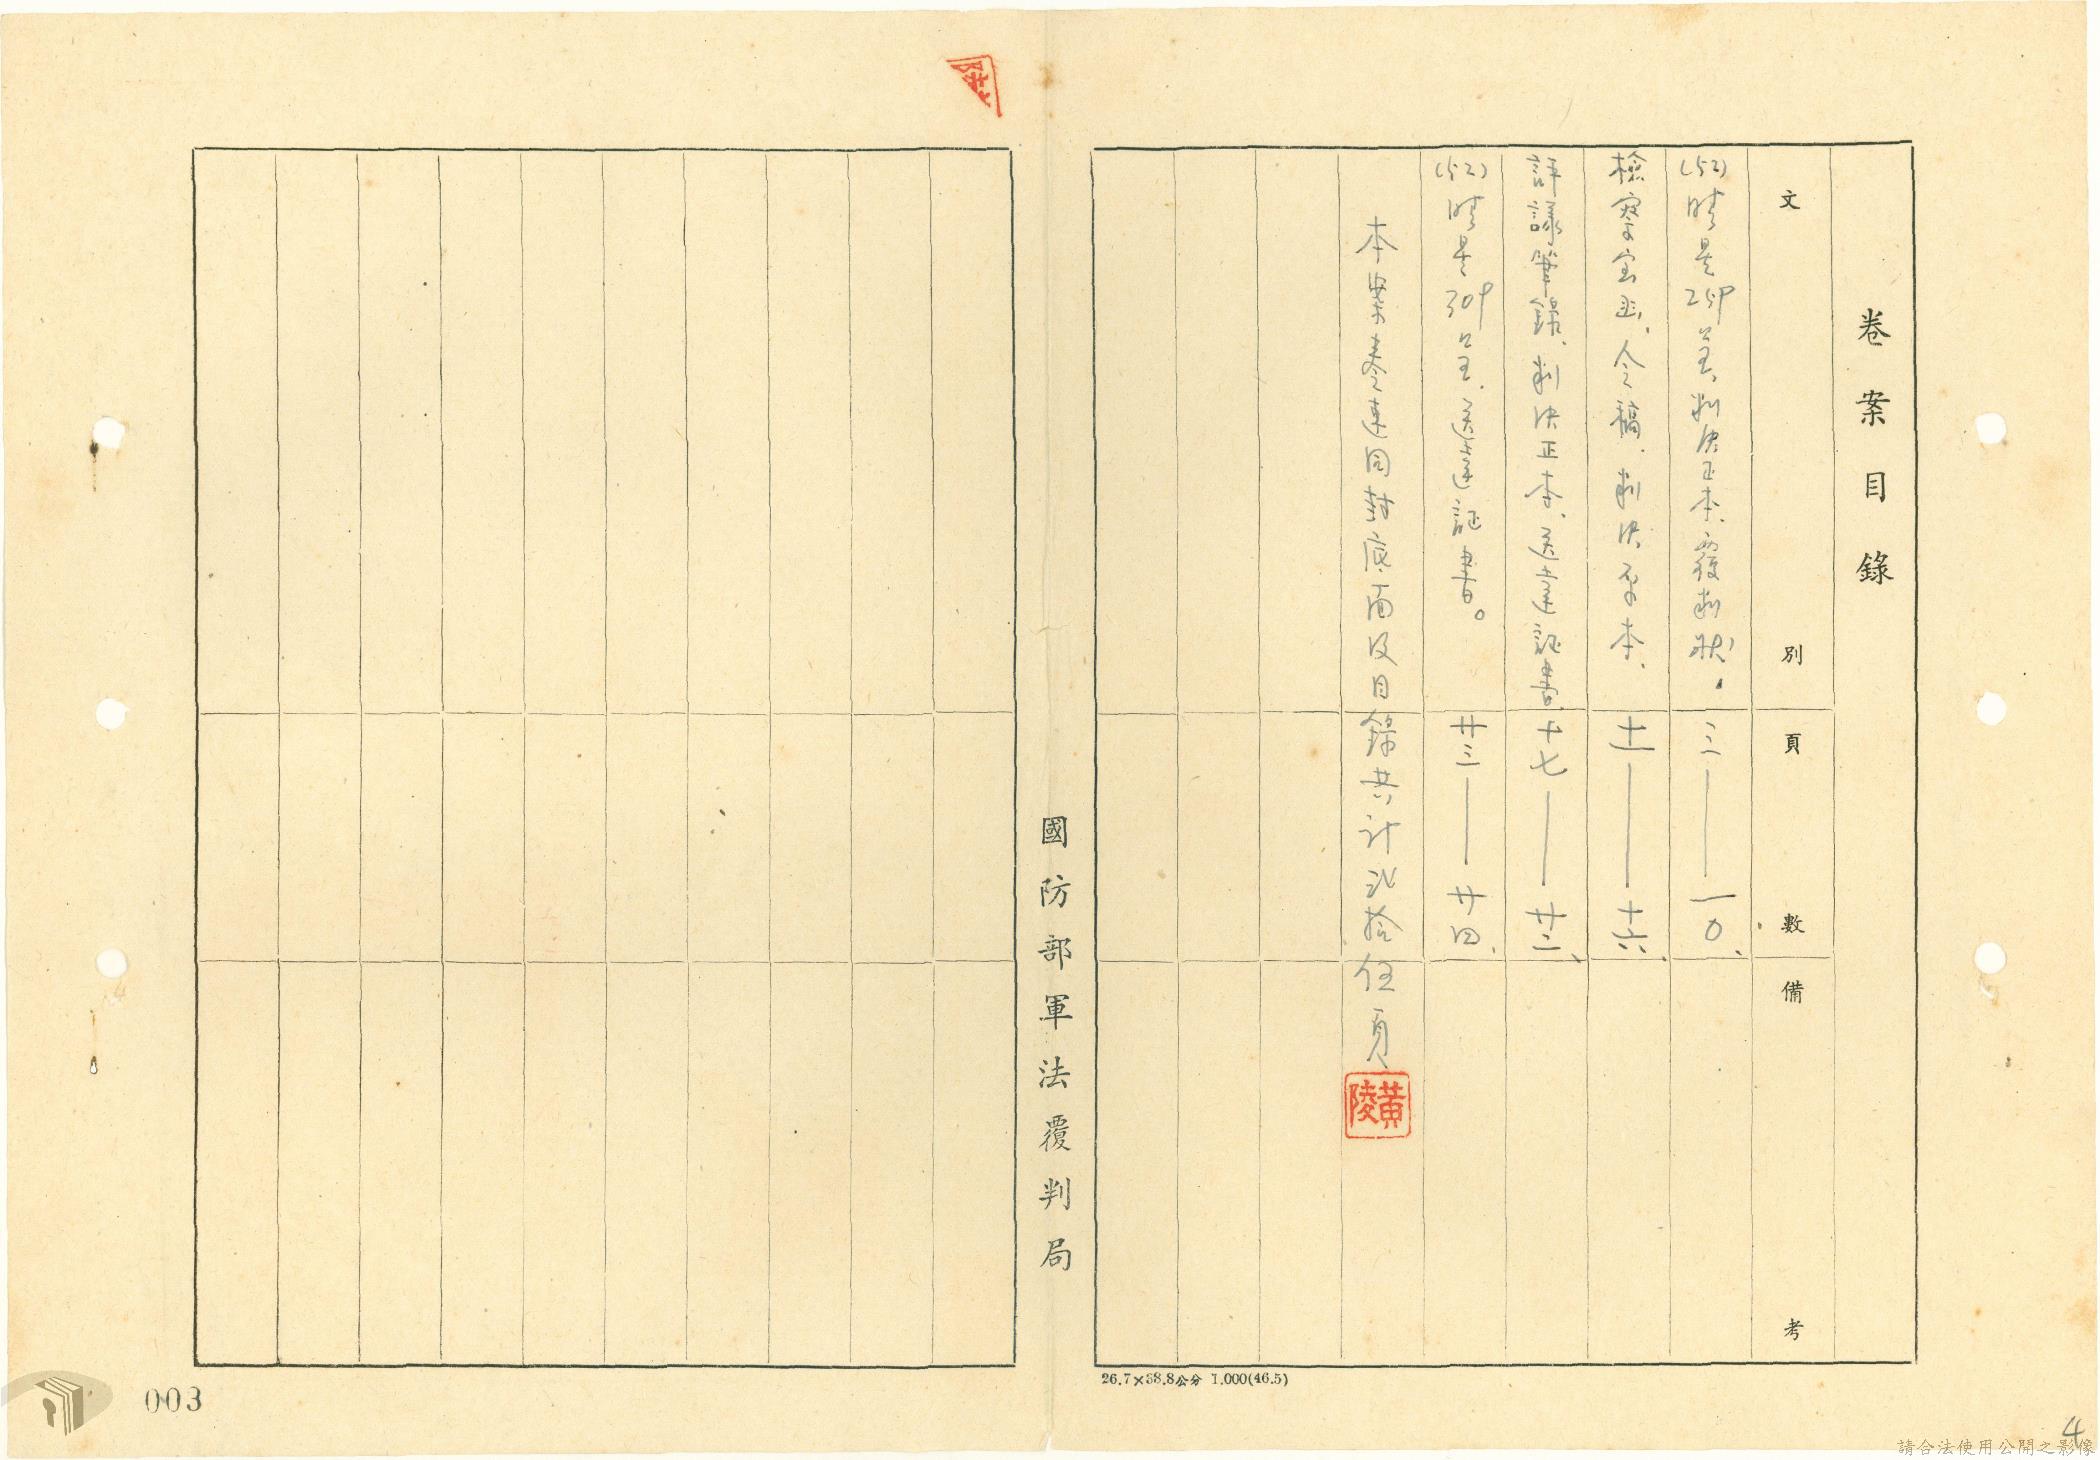 卷案目錄
文別
頁數
備考
(52)晴是259呈、判決正本、覆判狀、
三——一0、
檢察官函、令稿、判決原本、
十一——十六、
評議筆錄、判決正本、送達証書、
十七——廿二、
(52)晴是309呈、送達証書。
廿三——廿四、
本案卷連同封底面及目錄共計貳拾伍頁
黃陵
國防部軍法覆判局
26.7×38.8公分 1.000(46.5)
003
4
請合法使用公開之影像